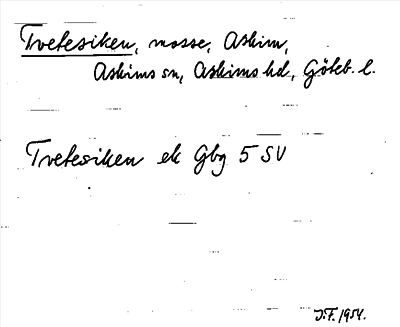 Tvetesiken, mosse, Askim,
Askims sn, Askims hd, Göteb. l.
Tvetesiken ek Gbg 5 SV
J.F. 1954.